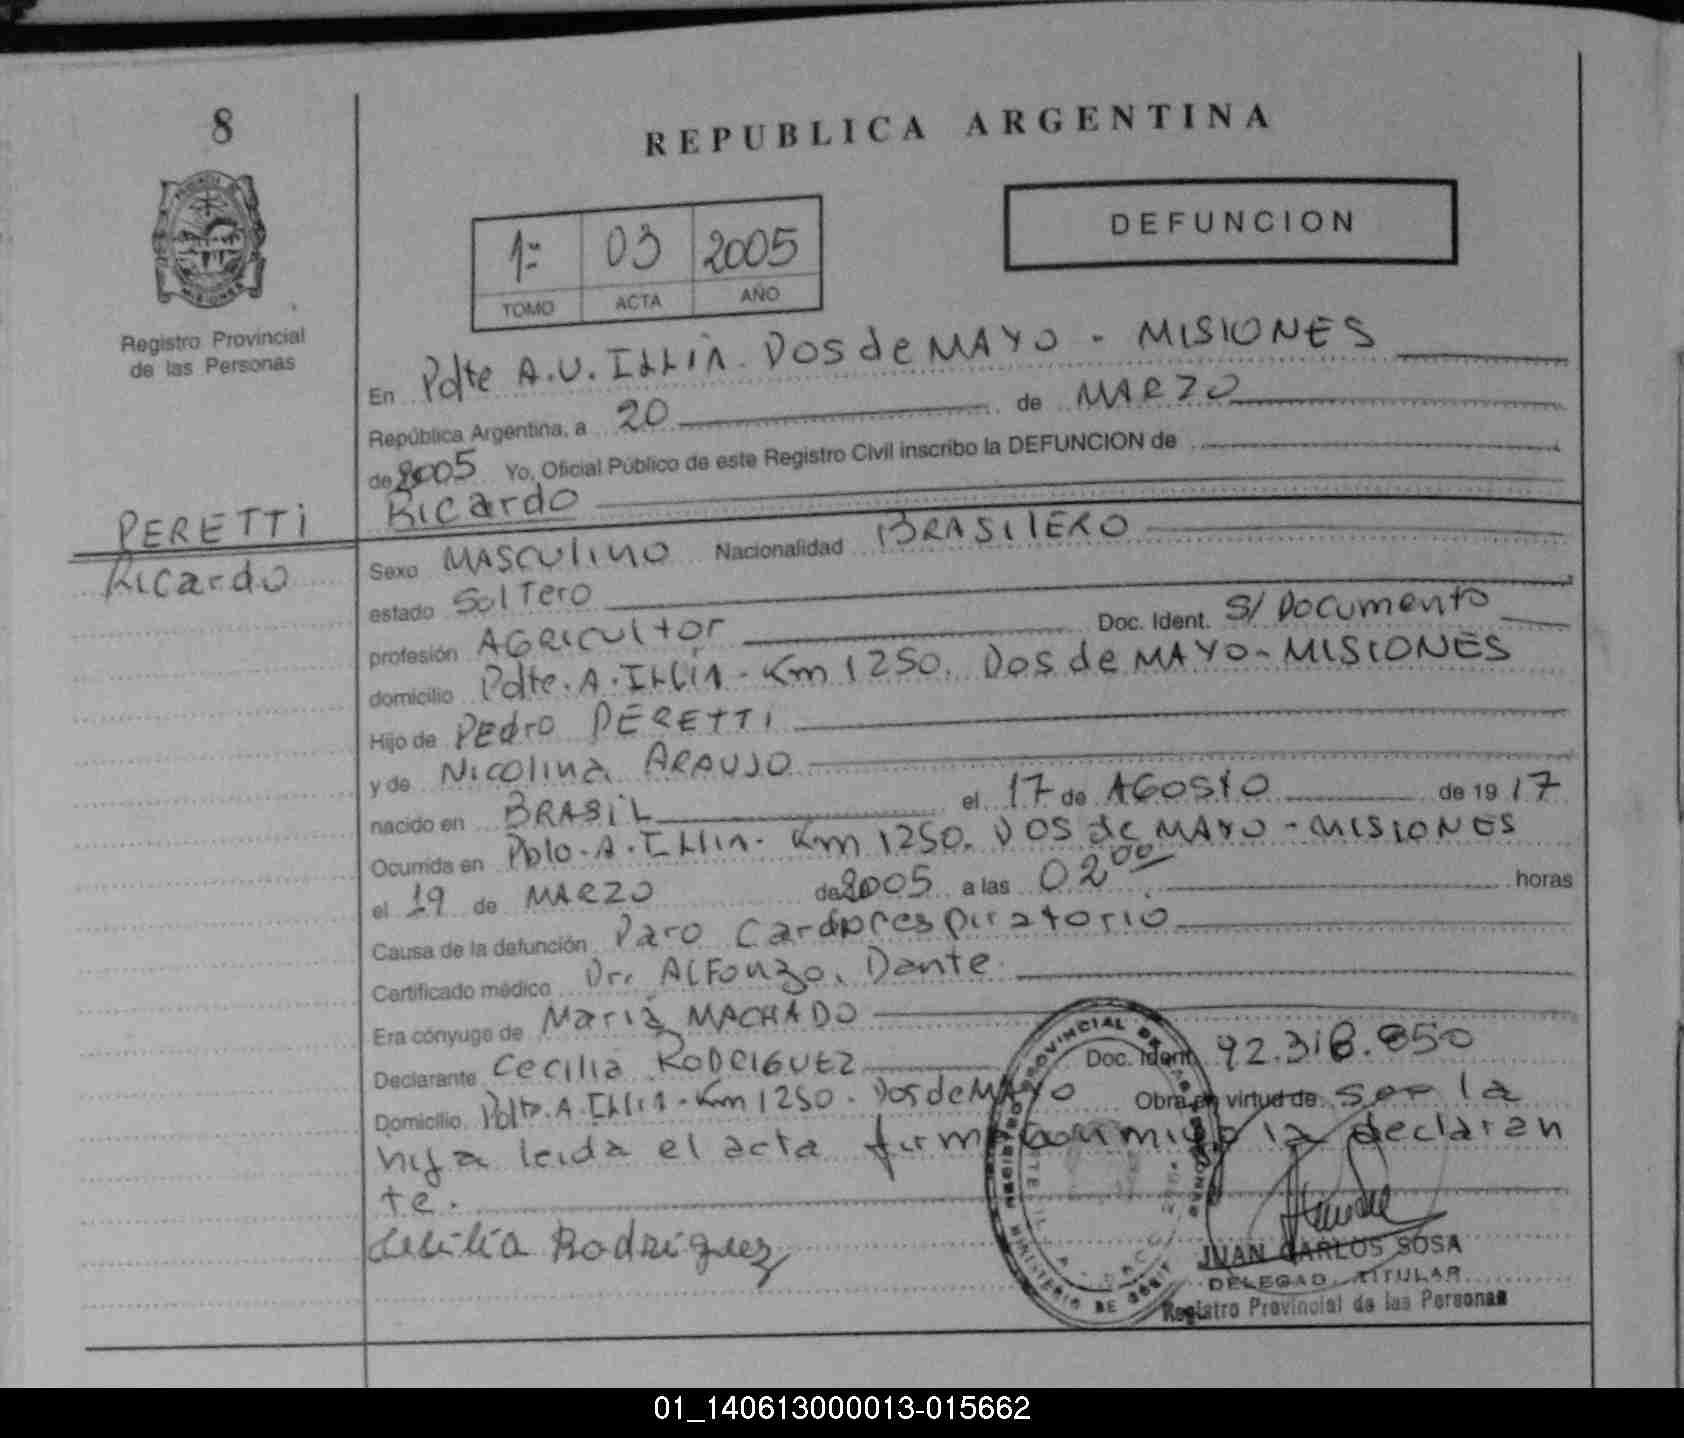 8
REPUBLICA ARGENTINA
DEFUNCION
1º 03 2005
TOMO ACTA AÑO
Registro Provincial
de las Personas
En Pdte A.U. ILLIA. DOS de MAYO - MISIONES
República Argentina, a 20 de MARZO
de 2005 Yo, Oficial Público de este Registro Civil inscribo la DEFUNCION de
PERETTI
Ricardo
Ricardo
Sexo MASCULINO Nacionalidad BRASILERO
estado SOLTERO
profesión AGRICULTOR Doc. Ident. S/ Documento
domicilio Pdte. A. ILLIA - Km 1250. DOS de MAYO - MISIONES
Hijo de PEDRO PERETTI
y de Nicolina ARAUJO
nacido en BRASIL el 17 de AGOSTO de 19 17
Ocurrida en Pblo. A. ILLIA - Km 1250. DOS de MAYO - MISIONES
el 19 de MARZO de 2005 a las 02 00 horas
Causa de la defunción Paro Cardiorespiratorio
Certificado médico Dr. ALFONZO, Dante
Era cónyuge de María MACHADO
Declarante Cecilia RODRIGUEZ Doc. Ident. 92.318.850
Domicilio Pdte. A. Illia - Km 1250. Dos de MAYO Obra en virtud de ser la
hija leida el acta firma conmigo la declaran
te.
Cecilia Rodriguez
JUAN CARLOS SOSA
DELEGADO TITULAR
Registro Provincial de las Personas
01_140613000013-015662